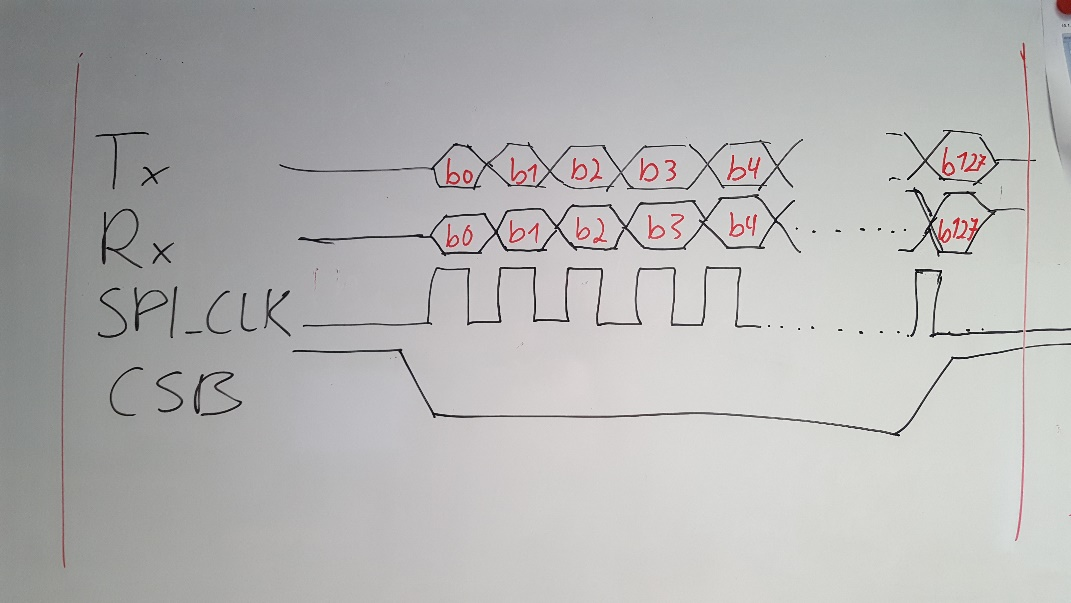 Tx b0 b1 b2 b3 b4 b127
Rx b0 b1 b2 b3 b4 b127
SPI_CLK
CSB